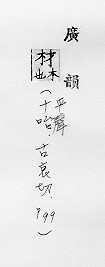 廣韻
材木也
(平聲
十咍、古哀切、p99)